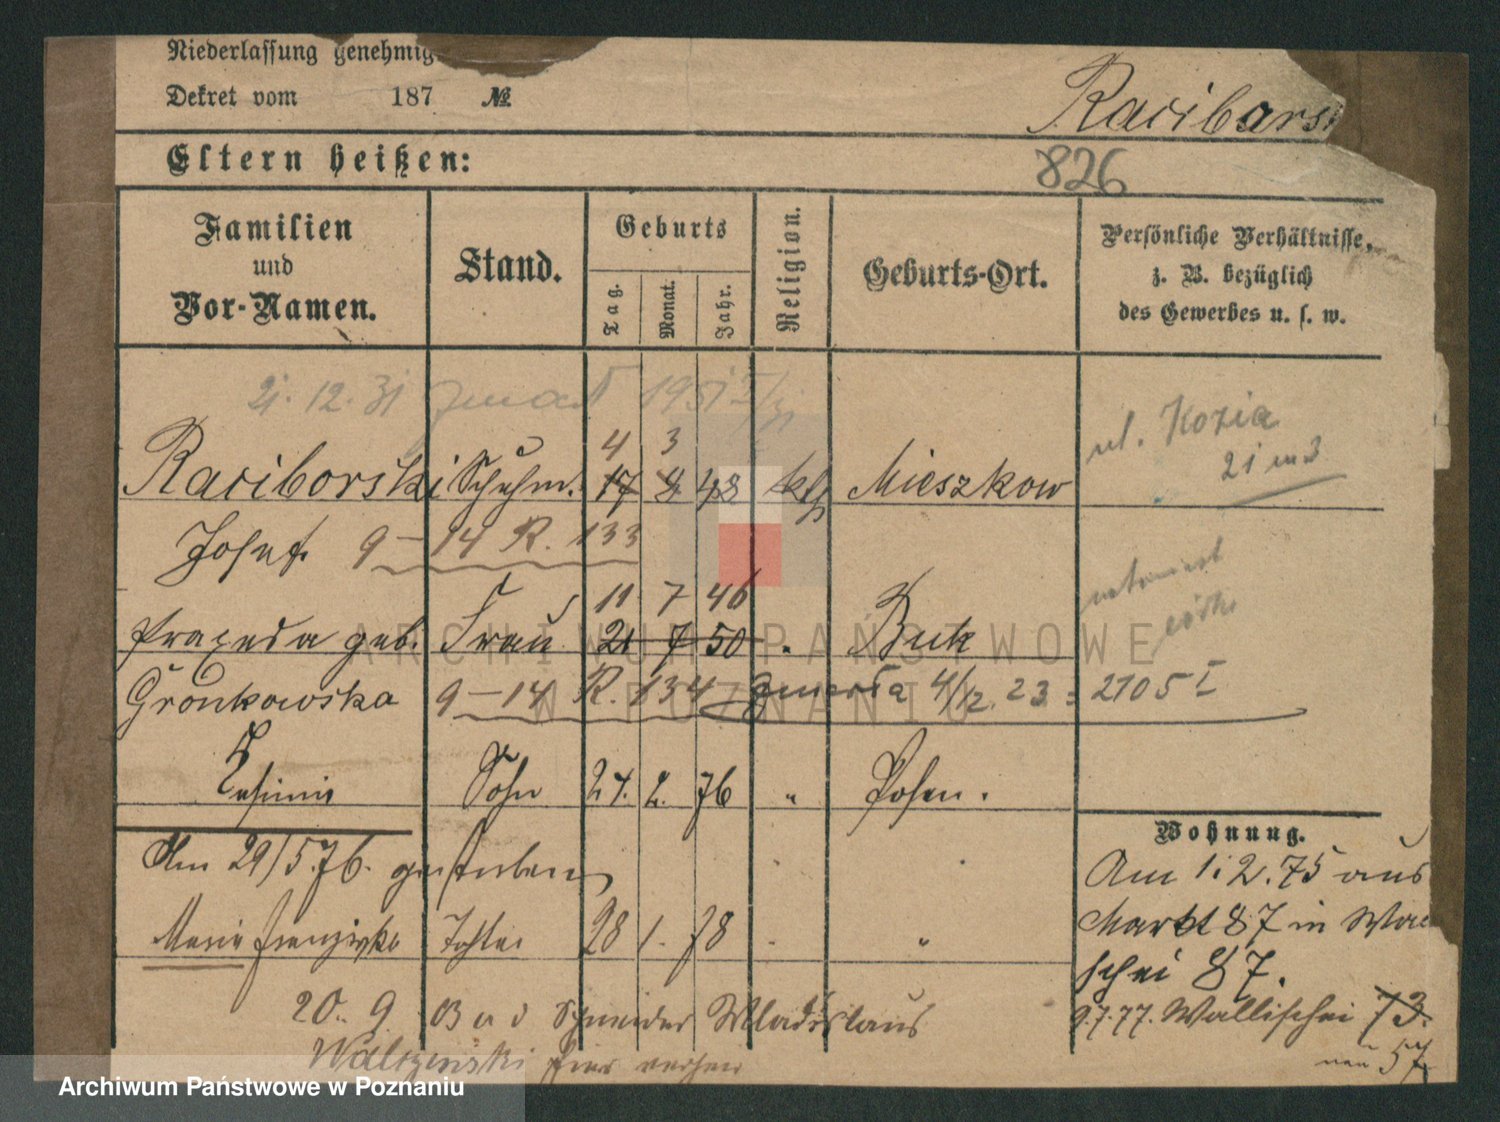 Niederlassung genehmig
Dekret vom 187 №
Raciborsk
Eltern heißen:
826
Familien und Vor-Namen.
Stand.
Geburts
Tag.
Monat.
Jahr.
Religion.
Geburts-Ort.
Persönliche Verhältnisse, z. B. bezüglich des Gewerbes u. s. w.
21. 12. 31 zmarł 1951
ul. Kozia
21 m 3
4 3
Raciborski Schuhm. 17 8 48 kth Mieszkow
Josef. 9 – 14 R. 133
11 7 46
Praxeda geb. Frau 21 7 50 " Buk
Gronkowska 9 – 14 R. 134 zmarła 4/12. 23 = 2705 I
Casimir Sohn 24. 2. 76 " Posen.
Wohnung.
Am 29/5.76. gestorben
Am 1.2.75 aus
Markt 87 in Wal
schei 87.
Maria Franziska Tochter 28 1. 78 "
20. 9. Schneider Wladislaus
9.7.77. Wallischei 73.
nau 57
ARCHIWUM PAŃSTWOWE
W POZNANIU
Archiwum Państwowe w Poznaniu